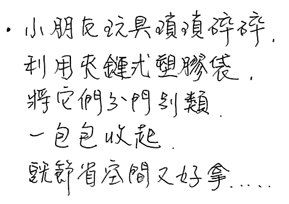 ・小朋友玩具瑣瑣碎碎,
利用夾鏈式塑膠袋,
將它們分門別類
一包包收起.
既節省空間又好拿.....